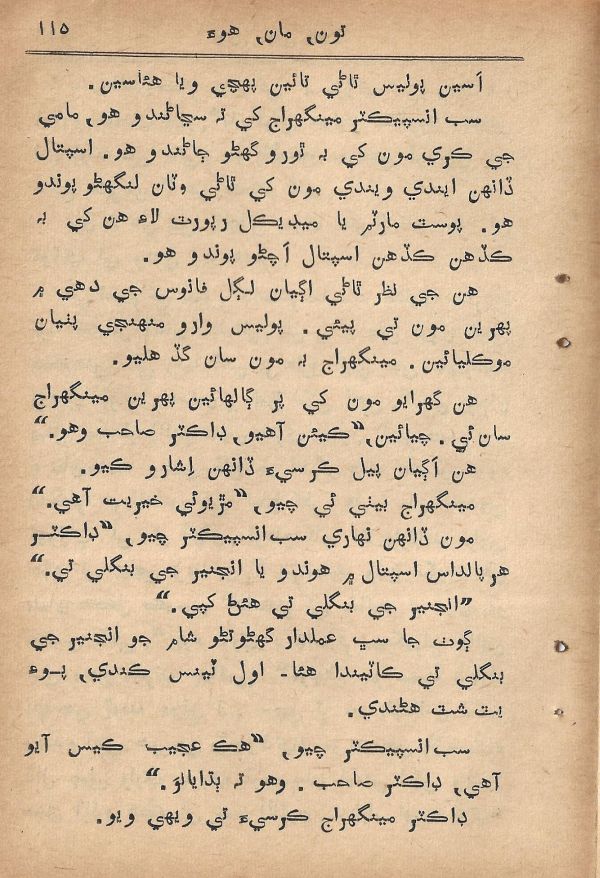 تون، مان، هوءَ ١١٥
آسين پوليس ٿاڻي تائين پهچي ويا هئاسين.
سب انسپيڪٽر مينگهراج کي ته سڃاڻندو هو، مامي
جي ڪري مون کي به ٿورو گهڻو ڄاڻندو هو. اسپتال
ڏانهن ايندي ويندي مون کي ٿاڻي وٽان لنگهڻو پوندو
هو. پوسٽ مارٽم يا ميڊيڪل رپورٽ لاءِ هن کي به
ڪڏهن ڪڏهن اسپتال آچڻو پوندو هو.
هن جي نظر ٿاڻي اڳيان لڳل فانوس جي دهي ۾
پهرين مون تي پيئي. پوليس وارو منهنجي پٺيان
موڪليائين. مينگهراج به مون سان گڏ هليو.
هن گهرايو مون کي پر ڳالهائين پهرين مينگهراج
سان ئي. چيائين، ”ڪيئن آهيو، ڊاڪٽر صاحب وهو.“
هن آڳيان پيل ڪرسيءَ ڏانهن اِشارو ڪيو.
مينگهراج بيٺي ئي چيو، ”مڙيوئي خيريت آهي.“
مون ڏانهن نهاري سب انسپيڪٽر چيو، ”ڊاڪٽر
هرپالداس اسپتال ۾ هوندو يا انجنير جي بنگلي تي.“
”انجنير جي بنگلي تي هئڻ کپي.“
ڳوٺ جا سڀ عملدار گهڻوڻڻو شام جو انجنير جي
بنگلي تي ڪاٽيندا هئا۔ اول ٽينس کندي، پوءِ
پٽ شٽ هڻندي.
سب انسپيڪٽر چيو، ”هڪ عجيب ڪيس آيو
آهي، ڊاڪٽر صاحب. وهو ته ٻڌايانوَ.“
ڊاڪٽر مينگهراج ڪرسيءَ تي ويهي ويو.